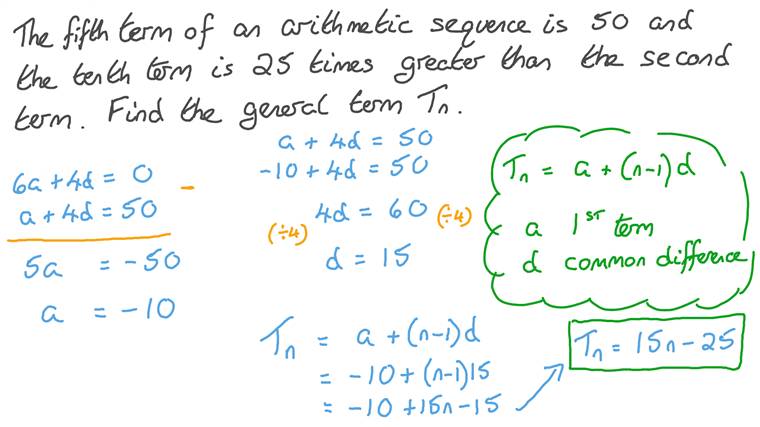 The fifth term of an arithmetic sequence is 50 and
the tenth term is 25 times greater than the second
term. Find the general term Tₙ.
6a + 4d = 0 −
a + 4d = 50
5a = −50
a = −10
a + 4d = 50
−10 + 4d = 50
(÷4) 4d = 60 (÷4)
d = 15
Tₙ = a + (n−1)d
a 1ˢᵗ term
d common difference
Tₙ = a + (n−1)d
= −10 + (n−1)15
= −10 + 15n − 15
Tₙ = 15n − 25